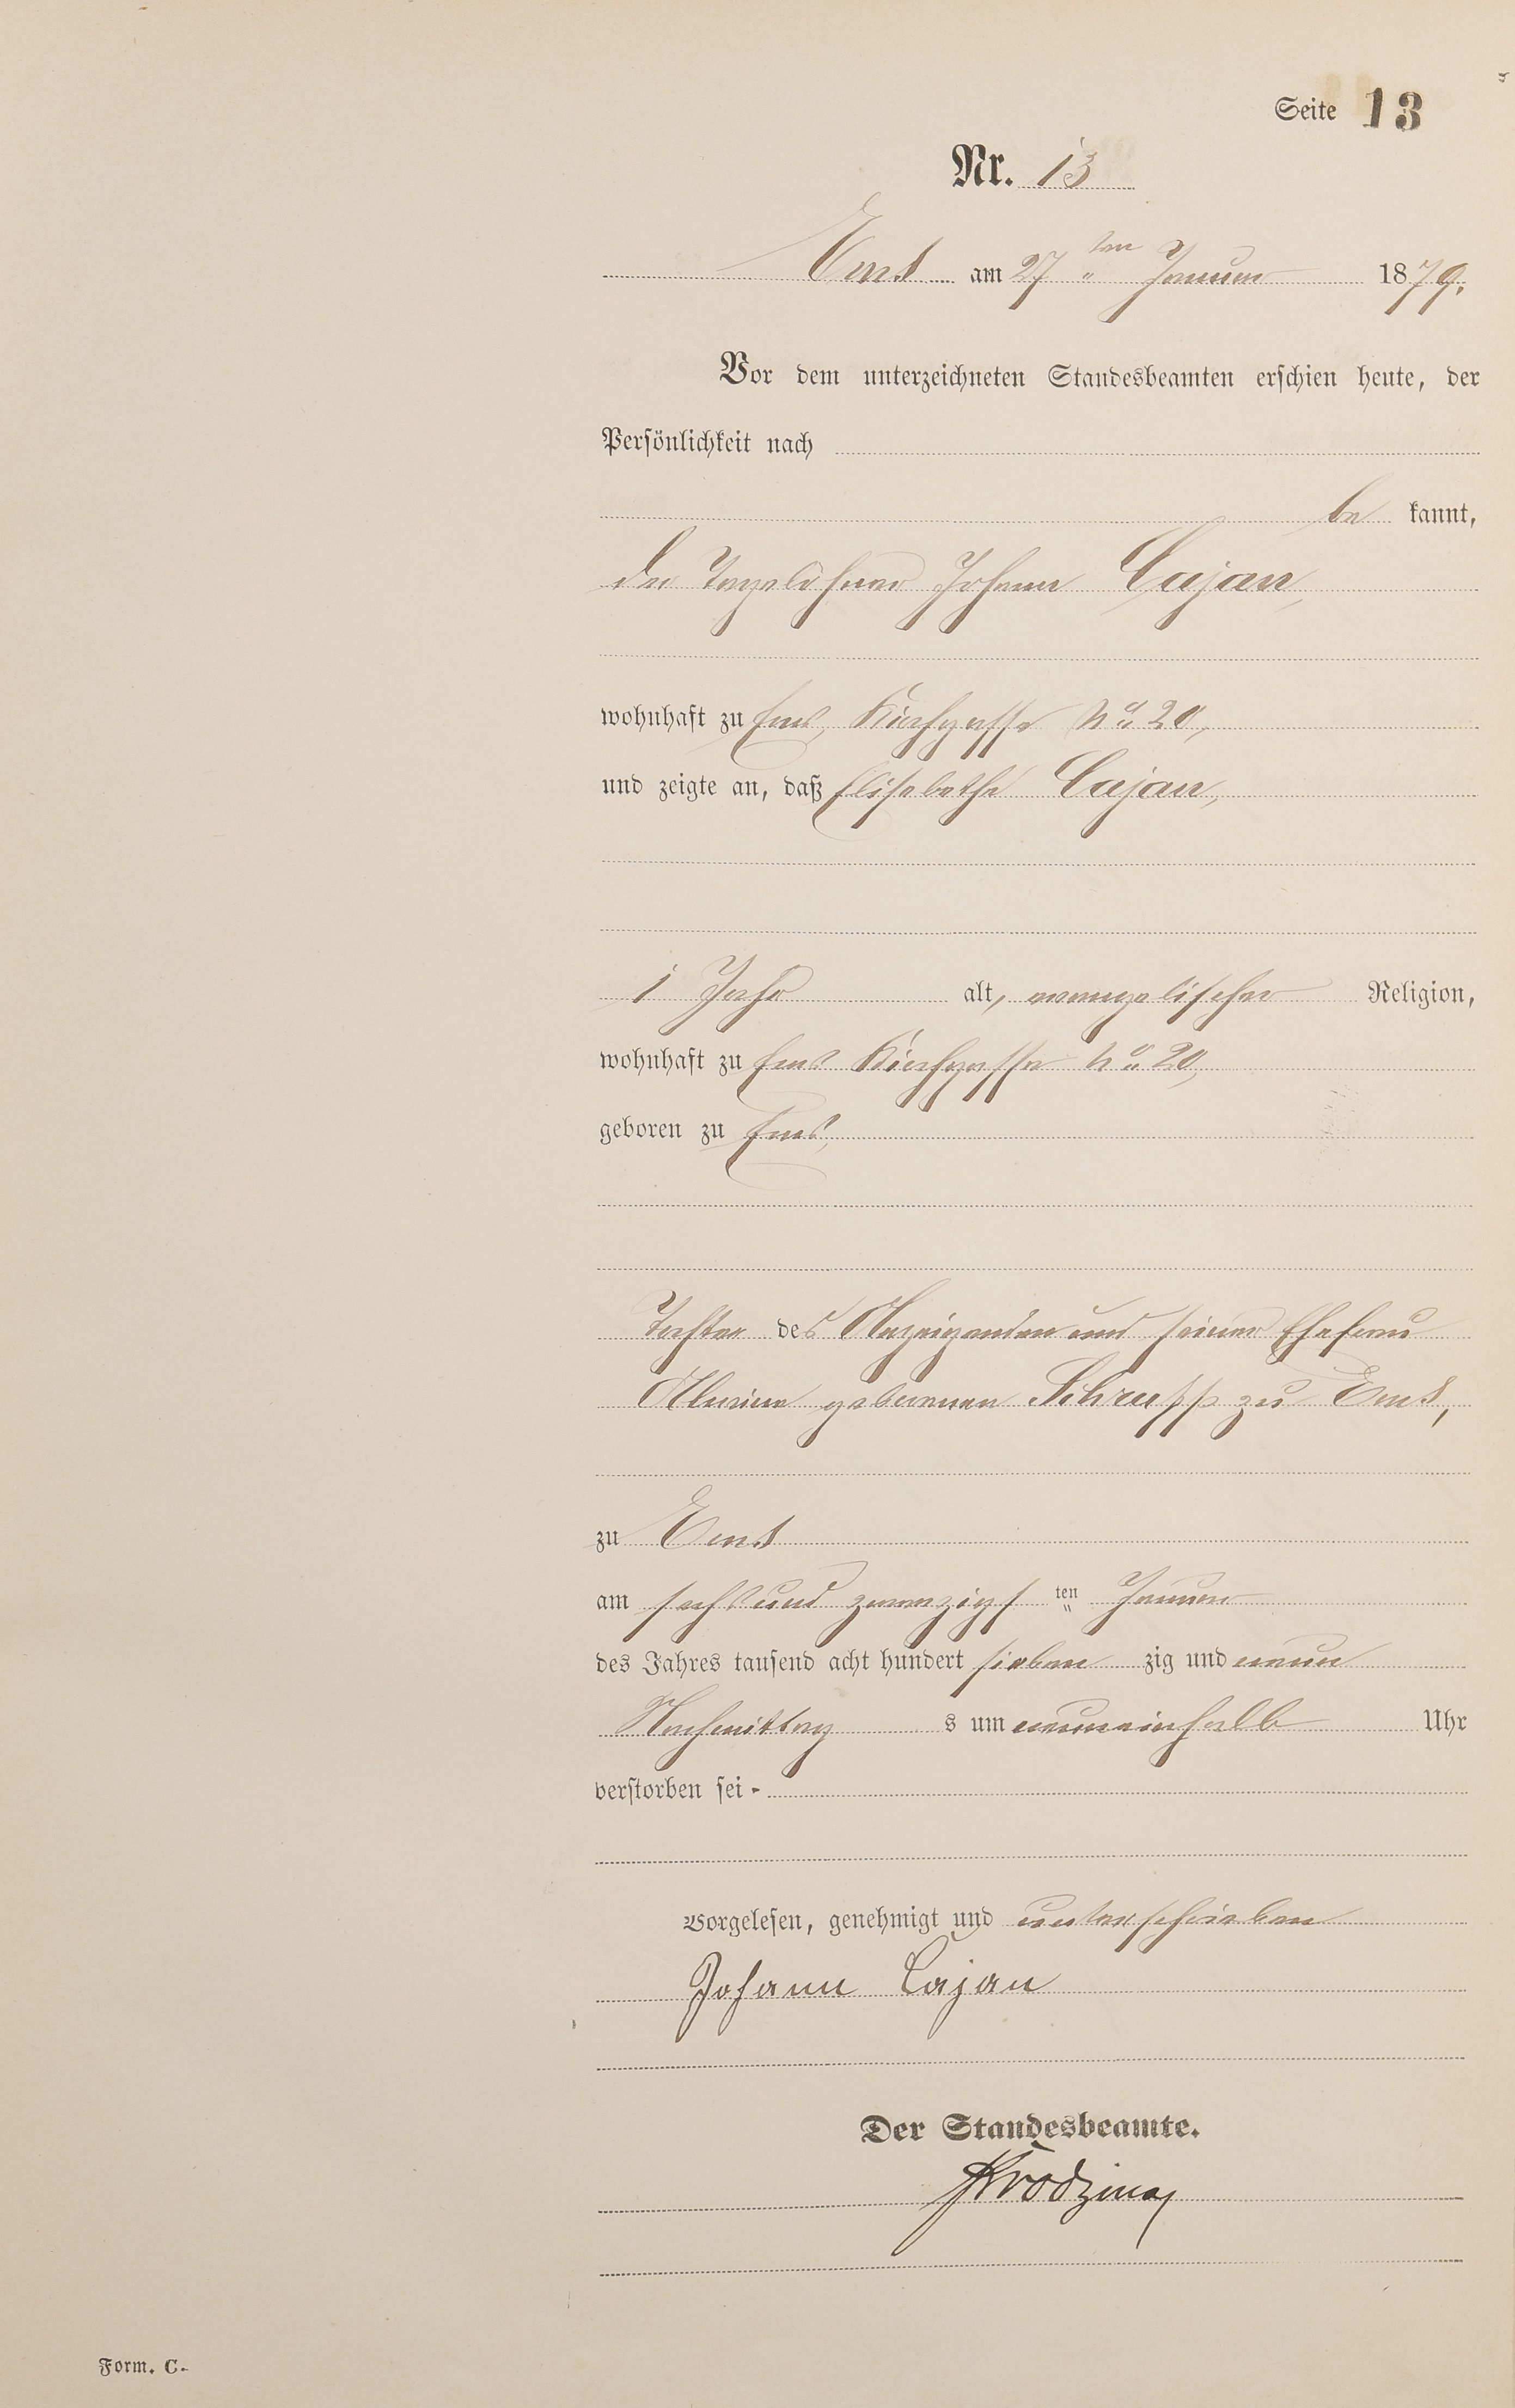 Seite 13
Nr. 13
Ems am 27 ten Januar 1879.
Vor dem unterzeichneten Standesbeamten erschien heute, der
Persönlichkeit nach
be kannt,
der Tagelöhner Johann Cajan,
wohnhaft zu Ems, Kirchgasse No 20,
und zeigte an, daß Elisabethe Cajan,
1 Jahr alt, evangelischer Religion,
wohnhaft zu Ems Kirchgasse No 20,
geboren zu Ems,
Tochter des Anzeigenden und seiner Ehefrau
geborenen Schrupp zu Ems,
zu Ems
am sechsundzwanzigs ten Januar
des Jahres tausend acht hundert sieben zig und neun
Nachmittag s um neuneinhalb Uhr
verstorben sei-
Vorgelesen, genehmigt und unterschrieben
Johann Cajan
Der Standesbeamte.
Form. C.